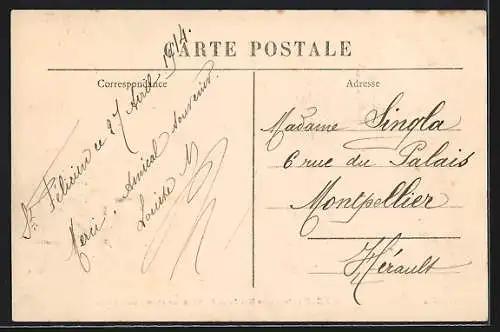 CARTE POSTALE
Correspondance
Adresse
St Félicien ce 27 Avril 1914.
Merci. Amical souvenir.
Louise M
Madame Singla
6 rue du Palais
Montpellier
Hérault